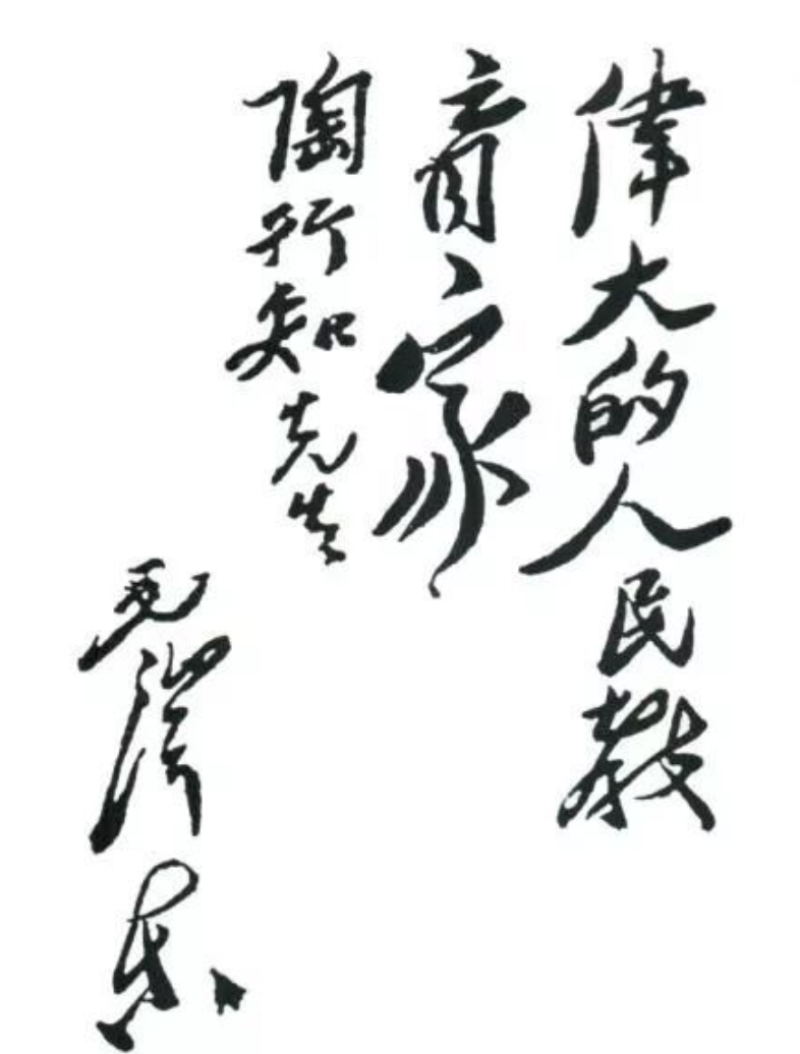 偉大的人民教
育家
陶行知先生
毛澤东